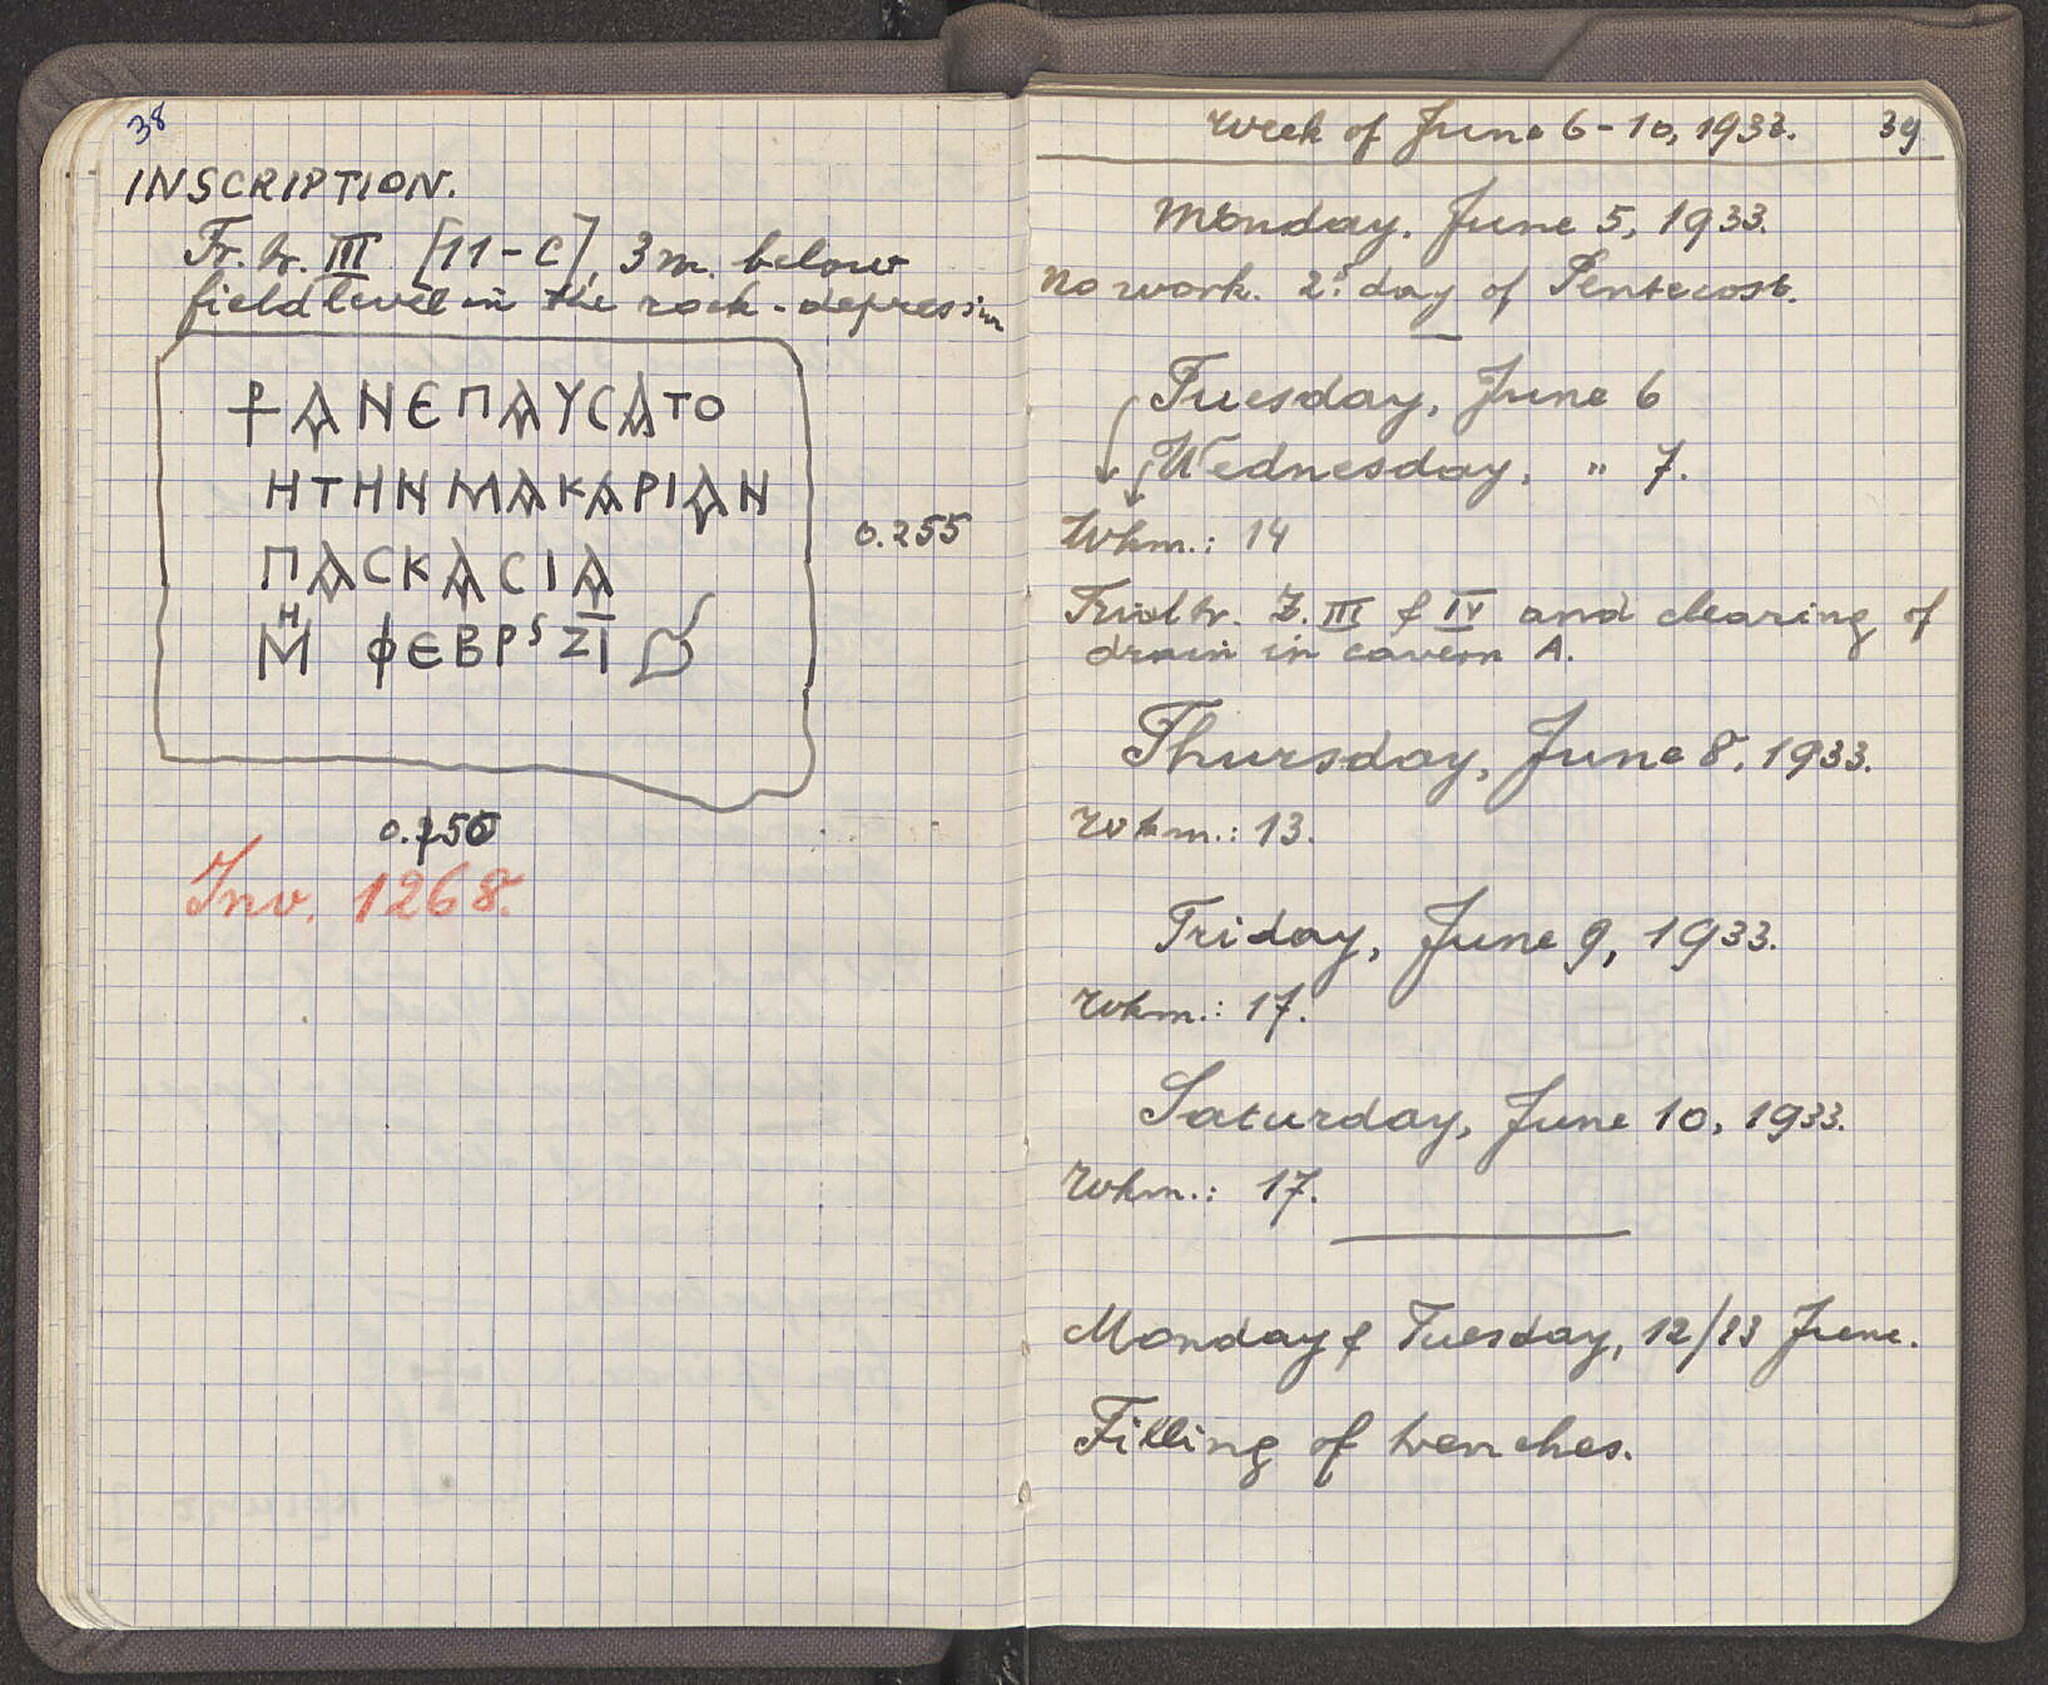 38
INSCRIPTION.
Fr. tr. III [11-C], 3 m. below
field level in the rock-depression
⳨ ΑΝΕΠΑΥСΑΤΟ
ΗΤΗΝΜΑΚΑΡΙΑΝ
ΠΑСΚΑСΙΑ
Η
Μ ΦΕΒΡS ΖΙ
0.255
0.256
Inv. 1268.
Week of June 6-10, 1933. 39
Monday, June 5, 1933.
No work. 2d. day of Pentecost.
Tuesday, June 6
Wednesday, " 7.
Wkm.: 14
Trial tr. Z. III & IV and clearing of
drain in cavern A.
Thursday, June 8, 1933.
Wkm.: 13.
Friday, June 9, 1933.
Wkm.: 17.
Saturday, June 10, 1933.
Wkm.: 17.
Monday & Tuesday, 12/13 June.
Filling of trenches.